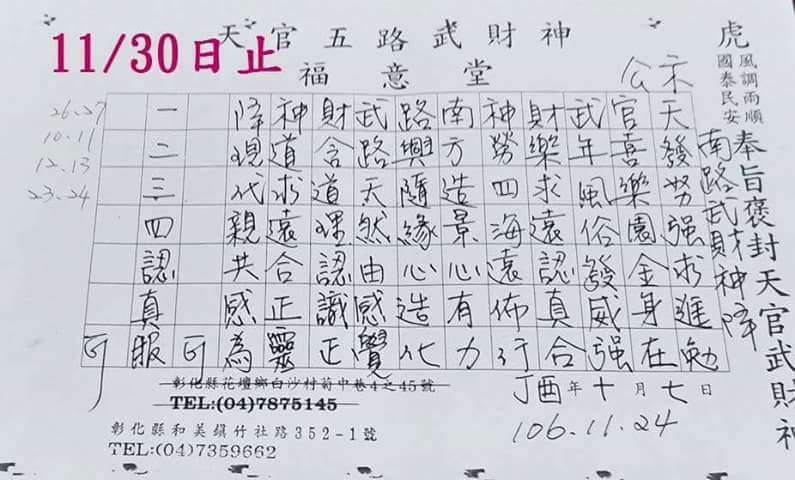 11/30日止
天官五路武財神
福意堂
公示
虎
風調雨順
國泰民安
奉旨褒封天官武財神
南路武財神降
天發努强求進勉
官喜樂園金身在
武年風俗發威强
財樂求遠認真合
神勞四海遠佈行
南方造景心有力
路興隨緣心造化
武路天然由感覺
財含道理認識正
神道求遠合正靈
降現代親共感為
可
一二三四認真服
可
26.27
10.11
12.13
23.24
丁酉年十月七日
106.11.24
彰化縣花壇鄉白沙村荀中巷4之45號
TEL:(04)7875145
彰化縣和美鎮竹社路352-1號
TEL:(04)7359662